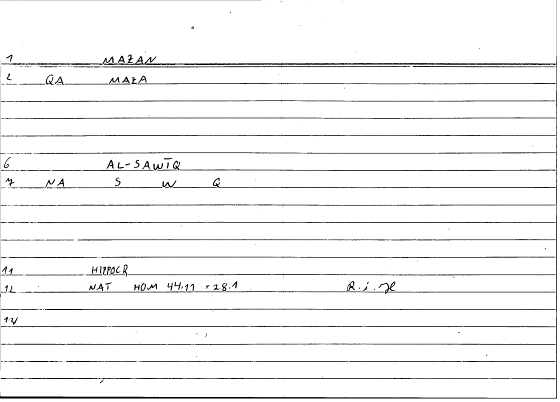 1 MAZAN
2 QA MAZA
6 AL-SAWĪQ
7 NA S W Q
11 HIPPOCR
12 NAT HOM 44.11 = 28.1 R.i.H
14